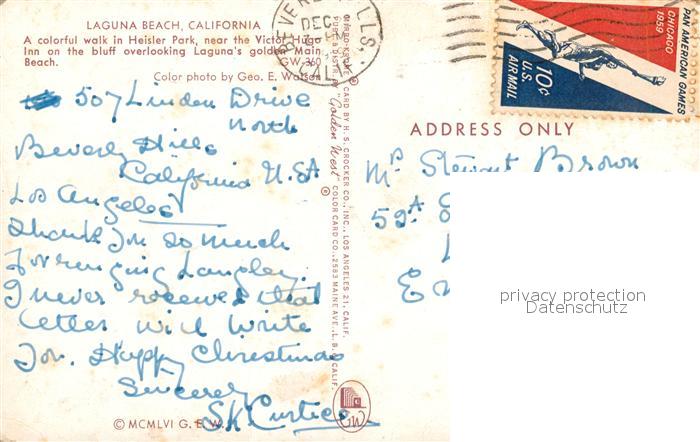 LAGUNA BEACH, CALIFORNIA
A colorful walk in Heisler Park, near the Victor Hugo
Inn on the bluff overlooking Laguna's golden Main
Beach. GW-360
Color photo by Geo. E. Watson
507 Linden Drive
North
Beverly Hills
California U.S.A
Los Angeles
Thank you so much
for ringing Langley.
I never received that
letter will write
you. Happy Christmas
Sincerely
S.K. Curtice
© MCMLVI G. E. W.
"Golden West" COLOR CARD BY H. S. CROCKER CO., INC., LOS ANGELES 21, CALIF.
2583 MAINE AVE., L. B. CALIF.
GW
BEVERLY HILLS,
DEC
PAN AMERICAN GAMES
CHICAGO
1959
10¢
U.S.
AIR MAIL
ADDRESS ONLY
Mr Stewart Brown
59A
privacy protection
Datenschutz